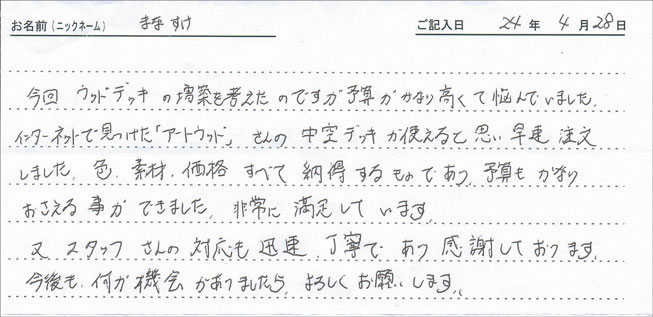 お名前(ニックネーム) まな すけ ご記入日 24 年 4 月 28 日
今回 ウッドデッキの増築を考えたのですが予算がかなり高くて悩んでいました.
インターネットで見つけた「アートウッド」さんの中空デッキが使えると思い早速注文
しました. 色. 素材. 価格 すべて 納得するものであり, 予算もかなり
おさえる事ができました. 非常に満足しています.
又 スタッフさんの対応も迅速. 丁寧であり感謝しております.
今後も. 何か機会がありましたら. よろしくお願いします.